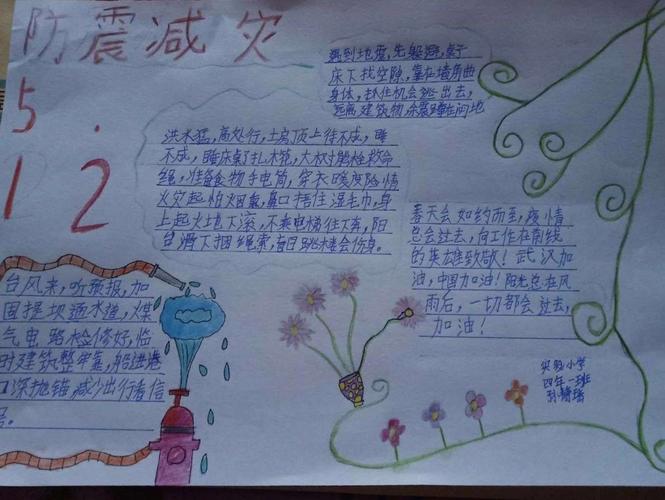 防震减灾
5.
12
遇到地震,先躲避,桌子
床下找空隙,靠在墙角曲
身体,抓住机会逃出去,
远离建筑物,余震蹲在闪地
洪水猛,高处行,土房顶上待不成,睡
不成,睡床桌子扎木筏,大树能栓救命
绳,准备食物手电筒,穿衣暖度险情
火灾起怕火口鼻口捂住湿毛巾,身
上起火地下滚,不乘电梯往下奔,阳
台滑下捆绳索,盲目跳楼会伤身。
春天会如约而至,疫情
总会过去,向工作在前线
的英雄致敬!武汉加
油,中国加油!阳光总在风
雨后,一切都会过去,
加油!
台风来,听预报,加
固堤坝通水道,煤
气电路检修好,临
时建筑整牢靠,船进港
口深抛锚,减少出行看信
实验小学
四年一班